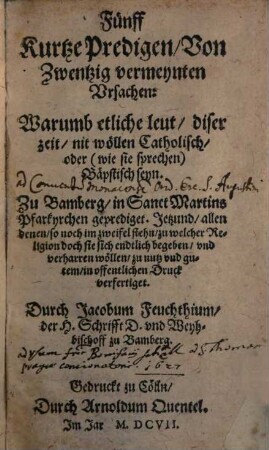 Fünff
Kurtze Predigen/Von
Zwentzig vermeynten
Vrsachen:
Warumb etliche leut/ diser
zeit/ nit wöllen Catholisch/
oder (wie sie sprechen)
Bäpstisch seyn.
ad Conventum Monacensem Ord. Ere. S. Augustini
Zu Bamberg/ in Sanct Martins
Pfarkyrchen geprediget. Jetzund/ allen
denen/ so noch im zweifel stehn/ zu welcher Re-
ligion doch sie sich endtlich begeben/ vnd
verharren wöllen/ zu nutz vnd gu-
tem/ in offentlichen Druck
verfertiget.
Durch Jacobum Feuchthium/
der H. Schrifft D. vnd Weyh-
bischoff zu Bamberg.
1627
Gedruckt zu Cölln/
Durch Arnoldum Quentel.
Im Jar M. DCVII.